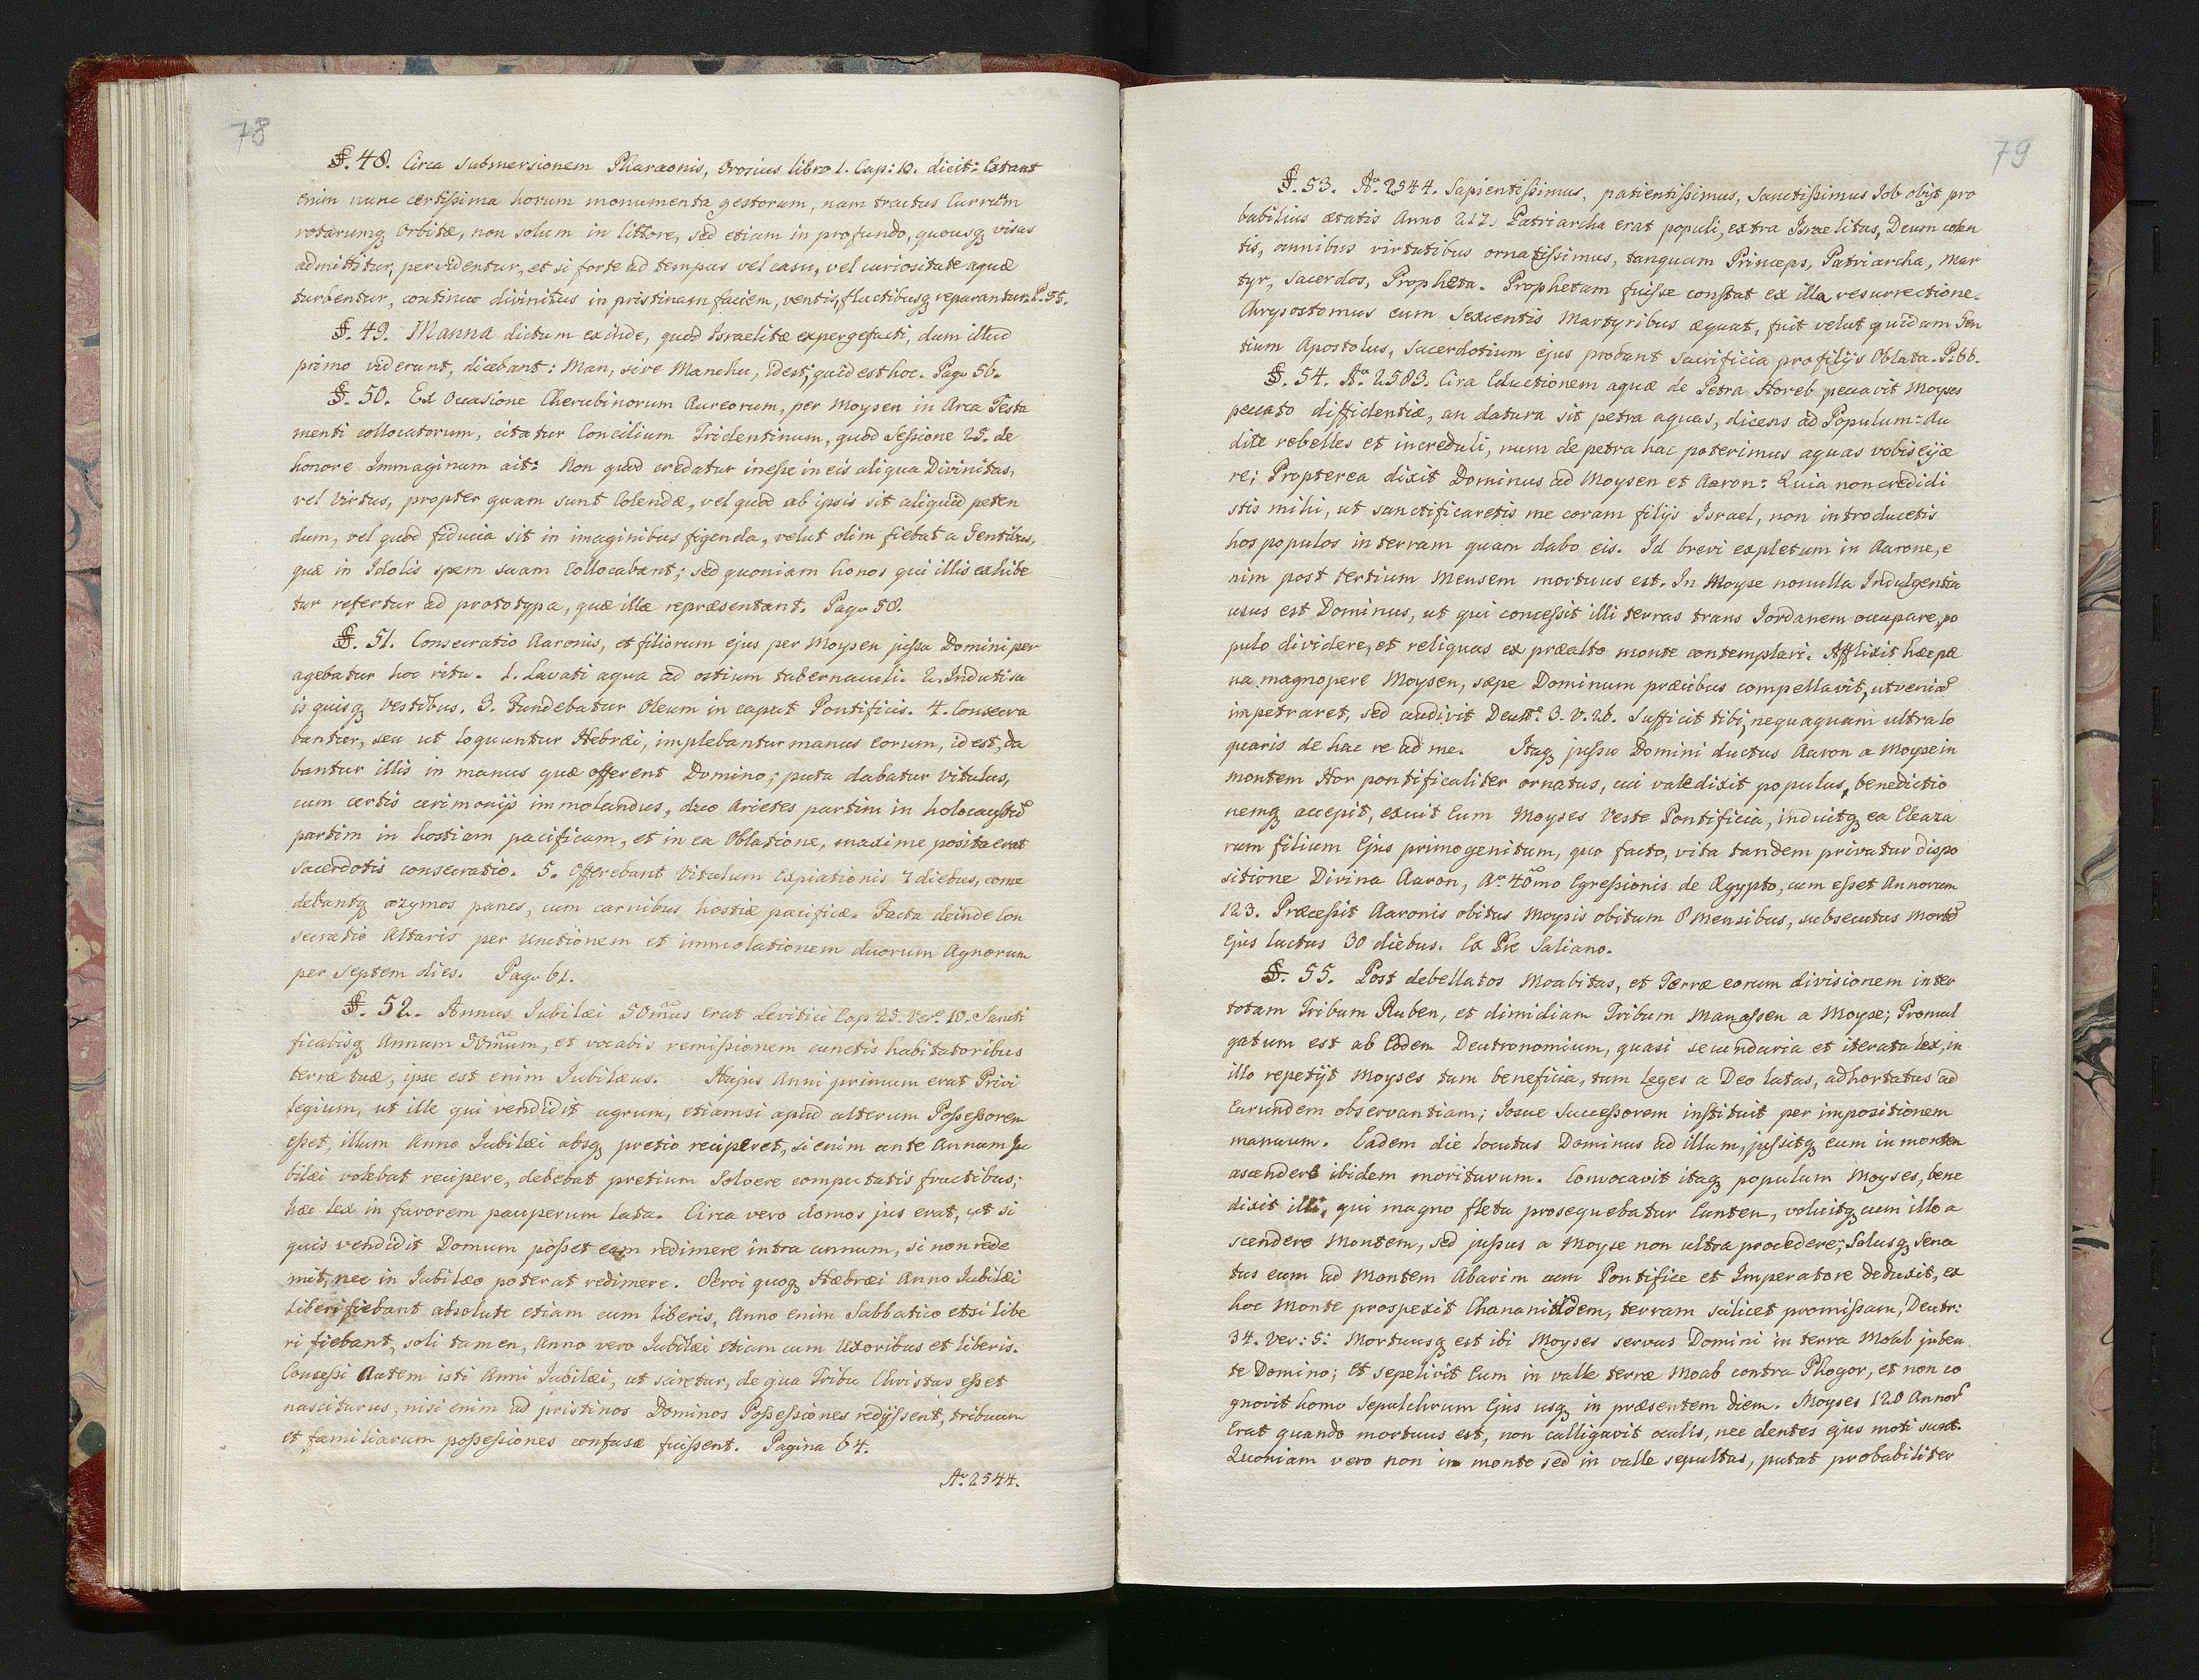 78
§. 48. Circa submersionem Pharaonis, Orosius libro 1. Cap: 10. dicit: Extant
enim nunc certissima horum monumenta gestorum, nam tractus Curruum
rotarumq orbitæ, non solum in littore, sed etiam in profundo, quousq visus
admittitur, pervidentur, et si forte ad tempus vel casu, vel curiositate aquæ
turbentur, continuo divinitus in pristinam faciem, ventis, fluctibusq reparantur. P. 55.
§. 49. Manna dictum exinde, quod Israelitæ expergefacti, dum illud
primo viderunt, dicebant: Man, sive Manchu, id est, quid est hoc. Pag. 56.
§. 50. Ex Occasione Cherubinorum Aureorum, per Moysen in Arca Testa
menti collocatorum, citatur Concilium Tridentinum, quod Sessione 25. de
honore Immaginum ait: Non quod credatur inesse in eis aliqua Divinitas,
vel Virtus, propter quam sunt Colendæ, vel quod ab ipsis sit aliquid peten
dum, vel quod fiducia sit in imaginibus figenda, velut olim fiebat a Gentibus,
quæ in Idolis spem suam Collocabant; sed quoniam honos qui illis exhibe
tur refertur ad prototypa, quæ illæ repræsentant. Pag. 58.
§. 51. Consecratio Aaronis, et filiorum ejus per Moysen jussu Domini per
agebatur hoc ritu. 1. Lavati aqua ad ostium tabernaculi. 2. Induti su
is quisq vestibus. 3. Fundebatur Oleum in caput Pontificis. 4. Consecra
bantur, seu ut loquuntur Hebræi, implebantur manus eorum, id est, da
bantur illis in manus quæ offerent Domino; puta dabatur Vitulus,
cum certis cerimonijs immolandus, duo Arietes partim in holocaustũ
partim in hostiam pacificam, et in ea Oblatione, maxime posita erat
sacerdotis consecratio. 5. Offerebant Vitulum Expiationis 7 diebus, come
debantq azymos panes, cum carnibus hostiæ pacificæ. Facta deinde Con
secratio Altaris per Unctionem et immolationem duorum Agnorum
per septem dies. Pag. 61.
§. 52. Annus Jubilæi 50mus erat Levitici Cap 25. Ver. 10. Sancti
ficabisq Annum 50mum, et vocabis remissionem cunctis habitatoribus
terræ tuæ, ipse est enim Jubilæus. Hujus Anni primum erat Privi
legium, ut ille qui vendidit agrum, etiamsi apud alterum Possessorem
esset, illum Anno Jubilæi absq pretio reciperet, si enim ante Annum Ju
bilæi volebat recipere, debebat pretium Solvere computatis fructibus;
hæc Lex in favorem pauperum lata. Circa vero domos jus erat, ut si
quis vendidit Domum posset eam redimere intra annum, si non rede
mit, nec in Jubilæo poterat redimere. Servi quoq Hæbræi Anno Jubilæi
Liberi fiebant absolute etiam cum liberis, Anno enim Sabbatico etsi libe
ri fiebant, soli tamen, Anno vero Jubilæi etiam cum Uxoribus et liberis.
Concessi Autem isti Anni Jubilæi, ut sciretur, de qua Tribu Christus esset
nasciturus, nisi enim ad pristinos Dominos Possessiones redijssent, tribuum
et familiarum possessiones confusæ fuissent. Pagina 64.
A.º 2544.
79
§. 53. A.º 2544. Sapientissimus, patientissimus, Sanctissimus Job obijt pro
babilius ætatis Anno 217. Patriarcha erat populi, extra Israelitas, Deum colen
tis, omnibus virtutibus ornatissimus, tanquam Princeps, Patriarcha, Mar
tyr, Sacerdos, Propheta. Prophetam fuisse constat ex illa resurrectione.
Chrysostomus eum Sexcentis Martyribus æquat, fuit velut quidam Gen
tium Apostolus, Sacerdotium ejus probant Sacrificia pro filijs Oblata. P. 66.
§. 54. A.º 2583. Cira Eductionem aquæ de Petra Horeb peccavit Moyses
peccato diffidentiæ, an datura sit petra aquas, dicens ad Populum: Au
dite rebelles et increduli, num de petra hac poterimus aquas vobis ejice
re; Propterea dixit Dominus ad Moysen et Aaron: Quia non credidi
stis mihi, ut sanctificaretis me coram filijs Israel, non introducetis
hos populos in terram quam dabo eis. Id brevi expletum in Aarone, e
nim post tertium Mensem mortuus est. In Moyse nonulla Indulgentia
usus est Dominus, ut qui concessit illi terras trans Jordanem occupare, po
pulo dividere, et reliquas ex præalto monte contemplari. Afflixit hæc pæ
na magnopere Moysen, sæpe Dominum præcibus compellavit, ut veniã
impetraret, sed audivit Deutr. 3. V. 26. Sufficit tibi, nequaquam ultra lo
quaris de hac re ad me. Itaq jussu Domini ductus Aaron a Moyse in
montem Hor pontificaliter ornatus, cui valedixit populus, benedictio
nemq accepit, exuit Eum Moyses Veste Pontificia, induitq ea Eleaza
rum filium Ejus primogenitum, quo facto, vita tandem privatur dispo
sitione Divina Aaron, A.º 40mo Egressionis de Ægypto, cum esset Annorum
123. Præcessit Aaronis obitus Moysis obitum 8 mensibus, subsecutus Mortẽ
Ejus luctus 30 diebus. Ex Pre Saliano.
§. 55. Post debellatos Moabitas, et Terræ eorum divisionem inter
totam Tribum Ruben, et dimidiam Tribum Manassen a Moyse; Promul
gatum est ab Eodem Deutronomium, quasi secundaria et iterata lex, in
illo repetijt Moyses tum beneficia, tum leges a Deo latas, adhortatus ad
Earundem observantiam; Josue Successorem instituit per impositionem
manuum. Eadem die locutus Dominus ad illum, jussitq eum in montem
ascendere ibidem moriturum. Convocavit itaq populum Moyses, bene
dixit illi, qui magno fletu prosequebatur Euntem, voluitq cum illo a
scendere Montem, sed jussus a Moyse non ultra procedere; Solusq Sena
tus eum ad Montem Abarim cum Pontifice et Imperatore deduxit, ex
hoc Monte prospexit Chananitidem, terram scilicet promissam, Deutr:
34. Ver: 5: Mortuusq est ibi Moyses servus Domini in terra Moab juben
te Domino; Et sepelivit Eum in valle terræ Moab contra Phogor, et non co
gnovit homo Sepulchrum Ejus usq in præsentem diem. Moyses 120 Annor̃
Erat quando mortuus est, non calligavit oculis, nec dentes ejus moti sunt.
Quoniam vero non in monte sed in valle sepultus, putat probabiliter